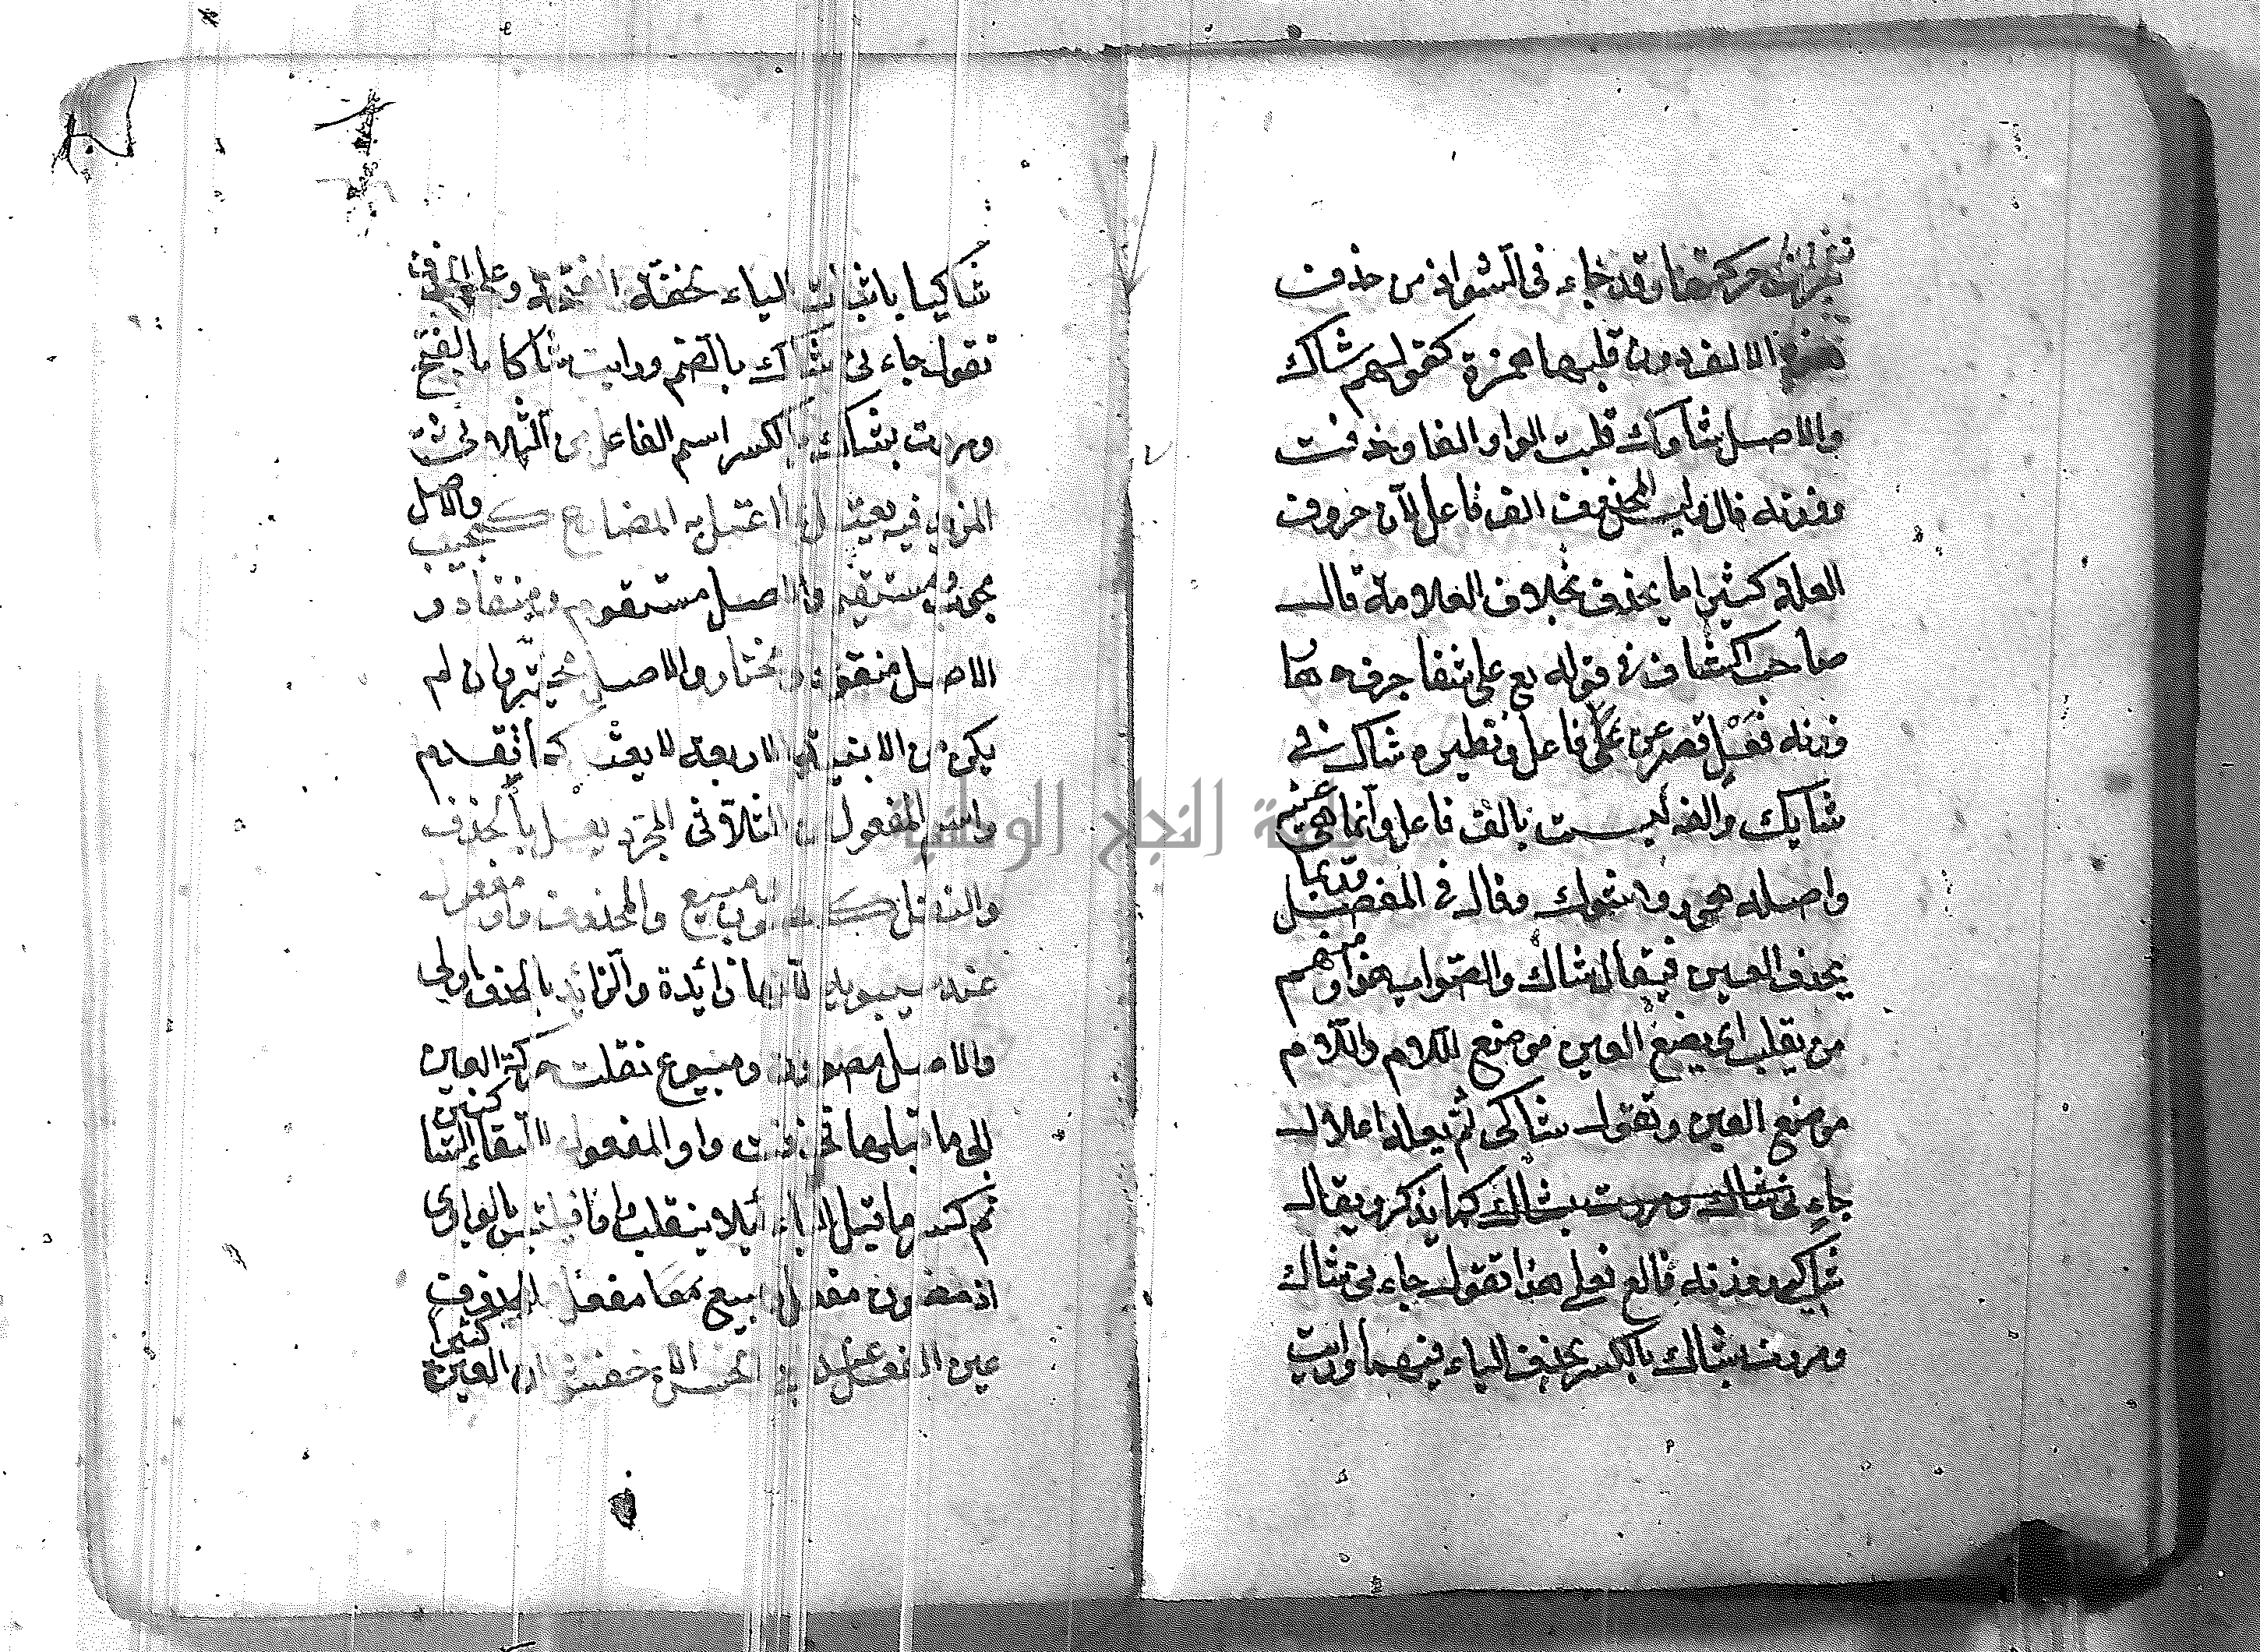 حركتها وقد جاء في الشواذ من حذف
هذه الالف دون قلبها همزة كقولهم شاك
والاصل شاوك قلبت الواو الفا وحذفت
ووزنه فال وليس المحذوف الف فاعل لان حروف
العلة كثيرا ما يحذف بخلاف العلامة قال
صاحب الكشاف في قوله تع على شفا جرف هار
وزنه فعل قصر عن فاعل ونظيره شاك في
شايك والفه ليست بالف فاعل وانما هي عينه
واصله هور وشوك وقال في المفصل وربما
يحذف العين فيقال شاك والصواب هذا ومنهم
من يقلب اي يضع العين موضع اللام واللام
موضع العين وتقول شاكي ثم يعله اعلال
جاء ني شاك ومررت بشاك كما يذكر ويقال
شاكي ووزنه فالع فعلى هذا تقول جاء ني شاك
ومررت بشاك بالكسر بحذف الياء فيهما ورايت
شاكيا باثبات الياء لخفة الفتحة وعلى الحذف
تقول جاء ني شاك بالضم ورايت شاكا بالفتح
ومررت بشاك بالكسر اسم الفاعل من الثلاثي
المزيد فيه يعتل بما اعتل به المضارع كمجيب والاصل
مجوب ومستقيم والاصل مستقوم ومنقاد و
الاصل منقود ومختار والاصل مختير وان لم
يكن من الابنية الاربعة لا يعتل كما تقدم
واسم المفعول من الثلاثي المجرد يعتل بالحذف
والنقل كمصون ومبيع والمحذوف واو مفعول
عند سيبويه لانها زائدة والزائد بالحذف اولى
والاصل مصوون ومبيوع نقلت حركة العين
الى ما قبلها فحذفت واو المفعول لالتقاء الساكنين
ثم كسر ما قبل الياء لئلا ينقلب واوا فيلتبس بالواوي
اذ مصون مفعل ومبيع مفعل والمحذوف
عين الفعل عند ابي الحسن الاخفش لان العين كثيرا
جامعة النجاح الوطنية